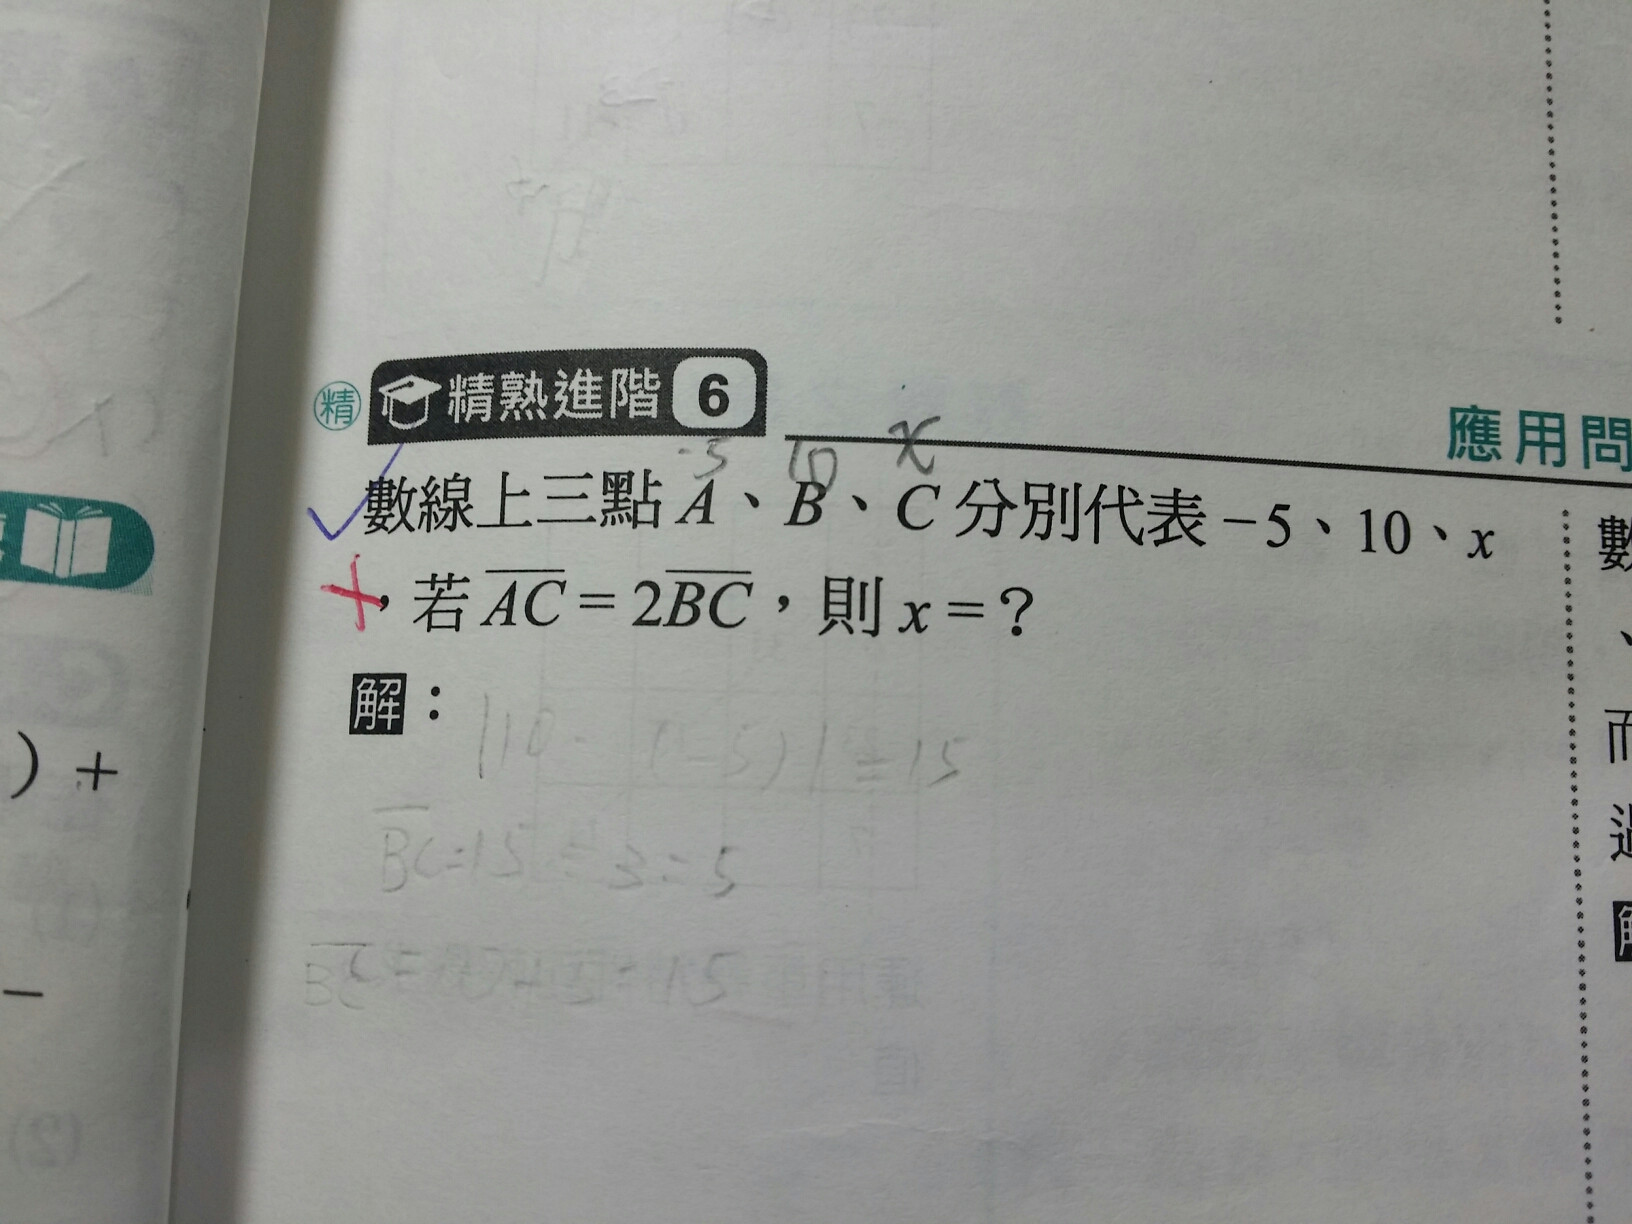 精 精熟進階 6
應用問
-5 10 x
數線上三點 A、B、C 分別代表 -5、10、x
，若 AC = 2BC，則 x = ？
解：
|10 - (-5)| = 15
BC=15 ÷ 3=5
) +
−
數
、
而
過
解